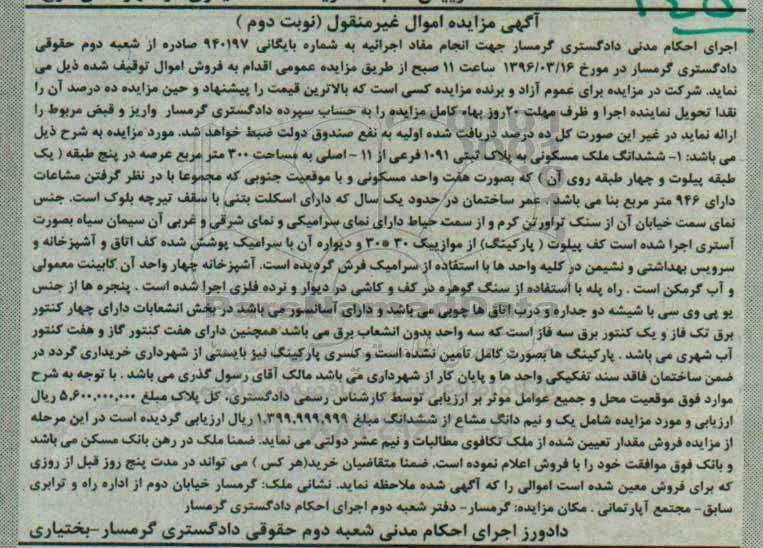 ۱۴۵
آگهی مزایده اموال غیرمنقول (نوبت دوم)
اجرای احکام مدنی دادگستری گرمسار جهت انجام مفاد اجرائیه به شماره بایگانی ۹۴۰۱۹۷ صادره از شعبه دوم حقوقی
دادگستری گرمسار در مورخ ۱۳۹۶/۰۳/۱۶ ساعت ۱۱ صبح از طریق مزایده عمومی اقدام به فروش اموال توقیف شده ذیل می
نماید. شرکت در مزایده برای عموم آزاد و برنده مزایده کسی است که بالاترین قیمت را پیشنهاد و حین مزایده ده درصد آن را
نقدا تحویل نماینده اجرا و ظرف مهلت ۲۰روز بهاء کامل مزایده را به حساب سپرده دادگستری گرمسار واریز و قبض مربوط را
ارائه نماید در غیر این صورت کل ده درصد دریافت شده اولیه به نفع صندوق دولت ضبط خواهد شد. مورد مزایده به شرح ذیل
می باشد: ۱- ششدانگ ملک مسکونی به پلاک ثبتی ۱۰۹۱ فرعی از ۱۱ - اصلی به مساحت ۳۰۰ متر مربع عرصه در پنج طبقه ( یک
طبقه پیلوت و چهار طبقه روی آن ) که بصورت هفت واحد مسکونی و با موقعیت جنوبی که مجموعا با در نظر گرفتن مشاعات
دارای ۹۴۶ متر مربع بنا می باشد . عمر ساختمان در حدود یک سال که دارای اسکلت بتنی با سقف تیرچه بلوک است. جنس
نمای سمت خیابان آن از سنگ تراورتن کرم و از سمت حیاط دارای نمای سرامیکی و نمای شرقی و غربی آن سیمان سیاه بصورت
آستری اجرا شده است کف پیلوت ( پارکینگ) از موازییک ۳۰*۳۰ و دیواره آن با سرامیک پوشش شده کف اتاق و آشپزخانه و
سرویس بهداشتی و نشیمن در کلیه واحد ها با استفاده از سرامیک فرش گردیده است. آشپزخانه چهار واحد آن کابینت معمولی
و آب گرمکن است . راه پله با استفاده از سنگ گوهره در کف و کاشی در دیوار و نرده فلزی اجرا شده است . پنجره ها از جنس
یو پی وی سی با شیشه دو جداره و درب اتاق ها چوبی می باشد و دارای آسانسور می باشد در بخش انشعابات دارای چهار کنتور
برق تک فاز و یک کنتور برق سه فاز است که سه واحد بدون انشعاب برق می باشد همچنین دارای هفت کنتور گاز و هفت کنتور
آب شهری می باشد . پارکینگ ها بصورت کامل تامین نشده است و کسری پارکینگ نیز بایستی از شهرداری خریداری گردد در
ضمن ساختمان فاقد سند تفکیکی واحد ها و پایان کار از شهرداری می باشد مالک آقای رسول گذری می باشد . با توجه به شرح
موارد فوق موقعیت محل و جمیع عوامل موثر بر ارزیابی توسط کارشناس رسمی دادگستری، کل پلاک مبلغ ۵,۶۰۰,۰۰۰,۰۰۰ ریال
ارزیابی و مورد مزایده شامل یک و نیم دانگ مشاع از ششدانگ مبلغ ۱,۳۹۹,۹۹۹,۹۹۹ ریال ارزیابی گردیده است در این مرحله
از مزایده فروش مقدار تعیین شده از ملک تکافوی مطالبات و نیم عشر دولتی می نماید. ضمنا ملک در رهن بانک مسکن می باشد
و بانک فوق موافقت خود را با فروش اعلام نموده است. ضمنا متقاضیان خرید(هر کس ) می تواند در مدت پنج روز قبل از روزی
که برای فروش معین شده است اموالی را که آگهی شده ملاحظه نماید. نشانی ملک: گرمسار خیابان دوم از اداره راه و ترابری
سابق- مجتمع آپارتمانی . مکان مزایده: گرمسار- دفتر شعبه دوم اجرای احکام دادگستری گرمسار
دادورز اجرای احکام مدنی شعبه دوم حقوقی دادگستری گرمسار-بختیاری
ParsNamadData